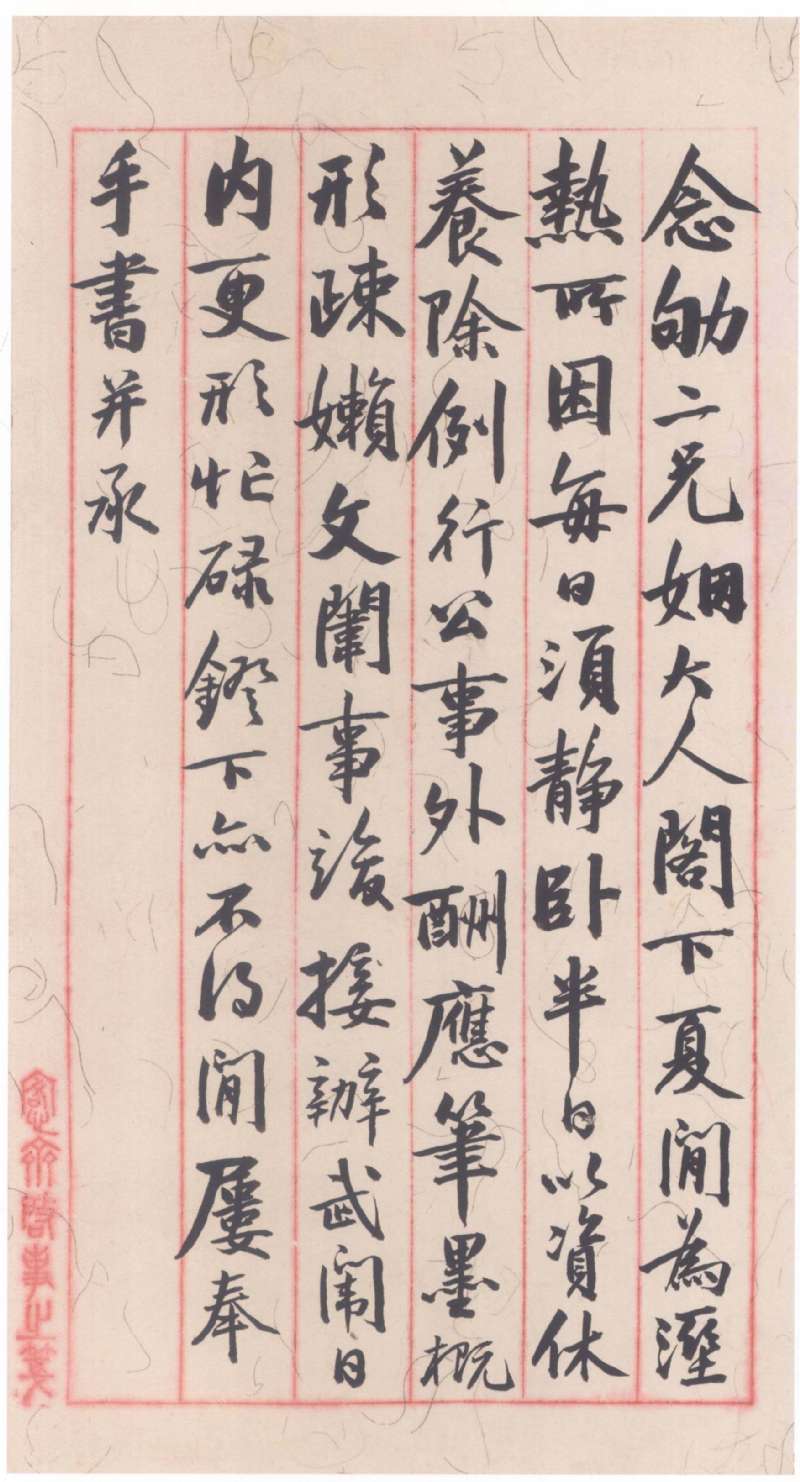 念劬二兄姻大人閣下夏間為溼
熱所困每日須靜臥半日以資休
養除例行公事外酬應筆墨概
形疎嬾文闈事竣接辦武闈日
内更形忙碌鐙下亦不得間屢奉
手書并承
愙齋啓事之箋